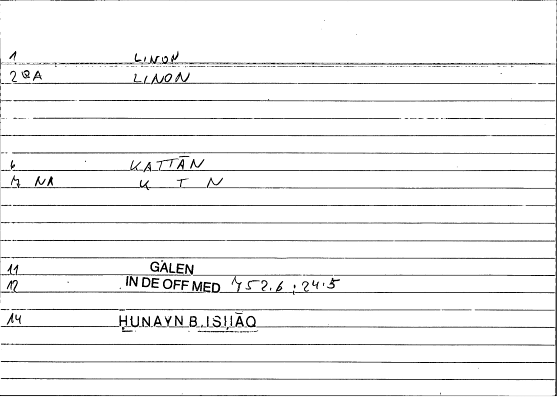 1 LINON
2 QA LINON
6 KATTĀN
7 NA K T N
11 GALEN
12 IN DE OFF MED 752.6 : 24.5
14 ḤUNAYN B. ISḤĀQ